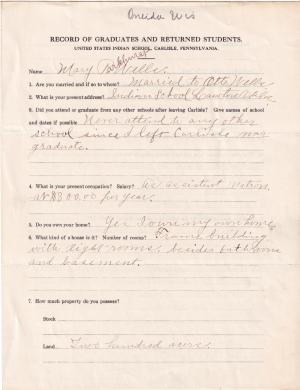 Oneida Wis
RECORD OF GRADUATES AND RETURNED STUDENTS.
UNITED STATES INDIAN SCHOOL, CARLISLE, PENNSYLVANIA.
Parkhurst
Name Mary Wells.
1. Are you married and if so to whom? Married to Otto Wells
2. What is your present address? Indian School Lawton Okla.
3. Did you attend or graduate from any other schools after leaving Carlisle? Give names of school
and dates if possible Never attend to any other
school since I left Carlisle was
graduate.
4. What is your present occupation? Salary? As assistant matron
at $300.00 per year.
5. Do you own your home? Yes I own my own home
6. What kind of a house is it? Number of rooms? Frame building
with eight rooms. besides bath room
and basement.
7. How much property do you possess?
Stock
Land Two hundred acres.